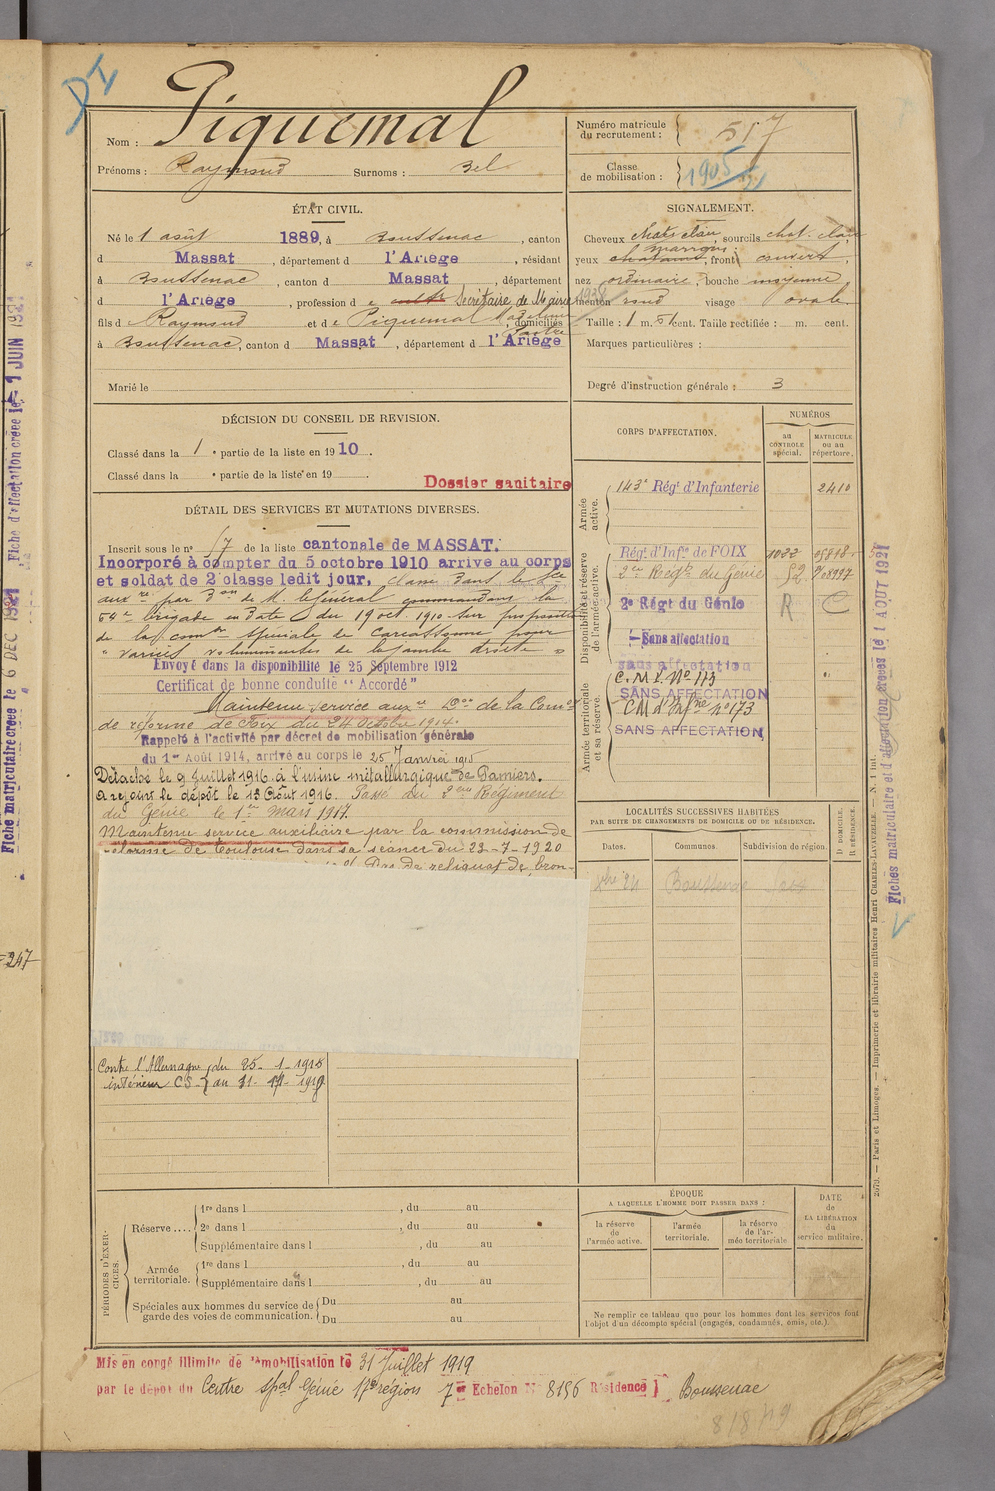 DI
Nom : Piquemal
Prénoms : Raymond Surnoms : Bel
Numéro matricule du recrutement : 517
Classe de mobilisation : 1905
ÉTAT CIVIL.
Né le 1 août 1889, à Boussenac, canton
d Massat, département d l'Ariège, résidant
à Boussenac, canton d Massat, département
d l'Ariège, profession d e Secrétaire de Mairie
fils d e Raymond et d e Piquemal, domiciliés
à Boussenac, canton d Massat, département d l'Ariège
Marié le
SIGNALEMENT.
Cheveux chat. clair, sourcils chat. clair,
yeux chatains marrons, front couvert,
nez ordinaire, bouche moyenne
menton rond visage ovale
Taille : 1 m. cent. Taille rectifiée : m. cent.
Marques particulières :
Degré d'instruction générale : 3
DÉCISION DU CONSEIL DE REVISION.
Classé dans la 1e partie de la liste en 1910.
Classé dans la e partie de la liste en 19 .
Dossier sanitaire
DÉTAIL DES SERVICES ET MUTATIONS DIVERSES.
Inscrit sous le no 57 de la liste cantonale de MASSAT.
Incorporé à compter du 5 octobre 1910 arrivé au corps
et soldat de 2e classe ledit jour, classé dans le sce
auxre par Don de M. le Général commandant la
64e brigade en date du 19 oct. 1910 sur proposition
de la comon spéciale de Carcassonne pour
" varices volumineuses de la jambe droite "
Envoyé dans la disponibilité le 25 Septembre 1912
Certificat de bonne conduite "Accordé"
Maintenu service auxre Don de la Comon
de réforme de Foix du 24 Octobre 1914.
Rappelé à l'activité par décret de mobilisation générale
du 1er Août 1914, arrivé au corps le 25 Janvier 1915
Détaché le 9 Juillet 1916 à l'usine métallurgique de Pamiers.
A rejoint le dépôt le 13 Août 1916. Passé du 2eme Régiment
du Génie le 1er Mars 1917.
Maintenu service auxiliaire par la commission de
réforme de Toulouse dans sa séance du 22-7-1920
reliquat de bron-
Contre l'Allemagne du 25-1-1915
intérieur CS au 31-
CORPS D'AFFECTATION.
NUMÉROS
au CONTRÔLE spécial.
MATRICULE ou au répertoire.
Armée active.
143e Régt d'Infanterie 2410
Disponibilité et réserve de l'armée active.
Régt d'Infie de FOIX 1022
2e Régt du Génie
2e Régt du Génie R
Sans affectation
sans affectation
Armée territoriale et sa réserve.
C.M.I. No 173
SANS AFFECTATION
CM d'Infrie no 173
SANS AFFECTATION
LOCALITÉS SUCCESSIVES HABITÉES
PAR SUITE DE CHANGEMENTS DE DOMICILE OU DE RÉSIDENCE.
Dates. Communes. Subdivision de région. D DOMICILE R RÉSIDENCE.
24 Boussenac
PÉRIODES D'EXERCICES.
Réserve....
1re dans l , du au
2e dans l , du au
Supplémentaire dans l , du au
Armée territoriale.
1re dans l , du au
Supplémentaire dans l , du au
Spéciales aux hommes du service de garde des voies de communication.
Du au
Du au
ÉPOQUE
A LAQUELLE L'HOMME DOIT PASSER DANS :
la réserve de l'armée active.
l'armée territoriale.
la réserve de l'armée territoriale
DATE de LA LIBÉRATION du service militaire.
Ne remplir ce tableau que pour les hommes dont les services font
l'objet d'un décompte spécial (engagés, condamnés, omis, etc.).
Mis en congé illimité de démobilisation le 31 Juillet 1919
par le dépôt du Centre spal Génie 17e région 7e Echelon No 8156 Résidence Boussenac
Fiche matriculaire créée le 6 DEC 1921
Fiche d'affectation créée le 1 JUIN 1921
Fiches matriculaire et d'affectation créées le 1 AOUT 1921
2070. — Paris et Limoges. — Imprimerie et librairie militaires Henri CHARLES-LAVAUZELLE. — N. 1 int.
247